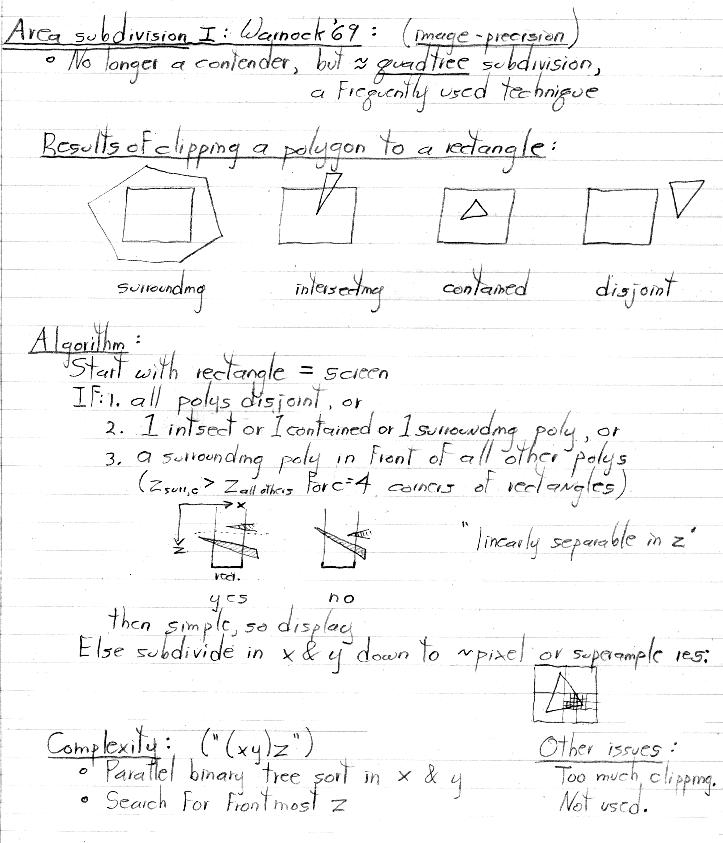 Area subdivision I: Warnock '69: (image-precision)
• No longer a contender, but ≈ quadtree subdivision,
a frequently used technique
Results of clipping a polygon to a rectangle:
surrounding intersecting contained disjoint
Algorithm:
Start with rectangle = screen
IF: 1. all polys disjoint, or
2. 1 intsect or 1 contained or 1 surrounding poly, or
3. a surrounding poly in front of all other polys
(Zsurr,c > Zall others for c=4 corners of rectangles)
x
z
rect.
"linearly separable in z"
yes no
then simple, so display
Else subdivide in x & y down to ~pixel or superample res:
Complexity: ("(xy)z")
• Parallel binary tree sort in x & y
• Search for frontmost z
Other issues:
Too much clipping.
Not used.